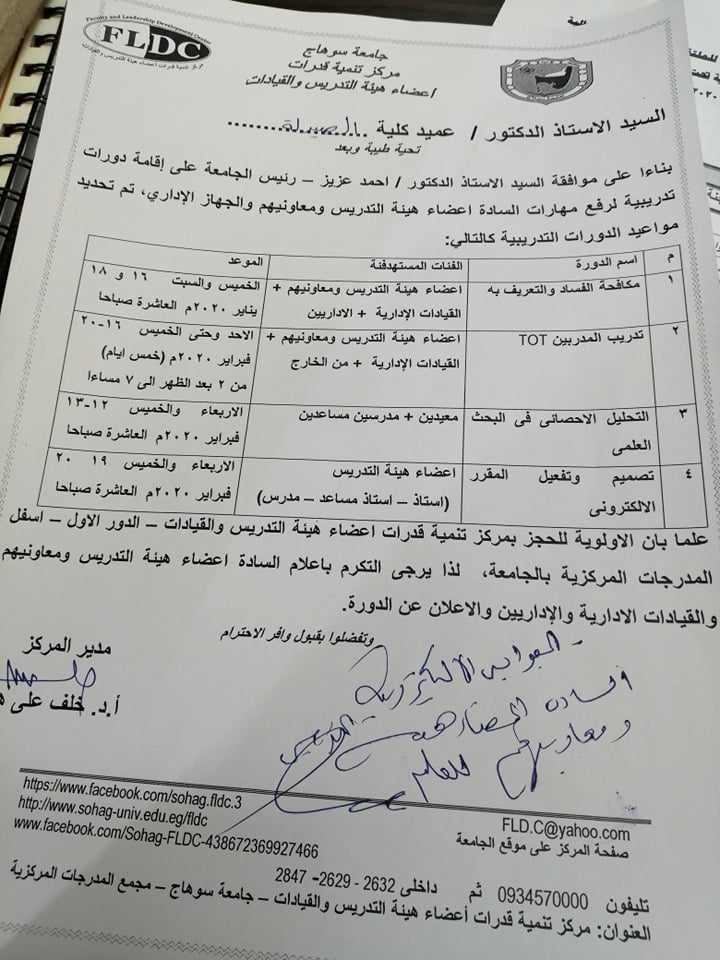 Faculty and Leadership Development Center
FLDC
مركز تنمية قدرات أعضاء هيئة التدريس والقيادات
جامعة سوهاج
مركز تنمية قدرات
اعضاء هيئة التدريس والقيادات
السيد الاستاذ الدكتور / عميد كلية ..الصيدلة..........
تحية طيبة وبعد
بناءا على موافقة السيد الاستاذ الدكتور / احمد عزيز – رئيس الجامعة على إقامة دورات
تدريبية لرفع مهارات السادة اعضاء هيئة التدريس ومعاونيهم والجهاز الإداري، تم تحديد
مواعيد الدورات التدريبية كالتالي:
م اسم الدورة الفئات المستهدفة الموعد
١ مكافحة الفساد والتعريف به اعضاء هيئة التدريس ومعاونيهم + الخميس والسبت ١٦ و ١٨
القيادات الإدارية + الاداريين يناير ٢٠٢٠م العاشرة صباحا
٢ تدريب المدربين TOT اعضاء هيئة التدريس ومعاونيهم + الاحد وحتى الخميس ١٦-٢٠
القيادات الإدارية + من الخارج فبراير ٢٠٢٠م (خمس ايام)
من ٢ بعد الظهر الى ٧ مساءا
٣ التحليل الاحصائى فى البحث معيدين + مدرسين مساعدين الاربعاء والخميس ١٢-١٣
العلمى فبراير ٢٠٢٠م العاشرة صباحا
٤ تصميم وتفعيل المقرر اعضاء هيئة التدريس الاربعاء والخميس ١٩ ٢٠
الالكترونى (استاذ – استاذ مساعد – مدرس) فبراير ٢٠٢٠م العاشرة صباحا
علما بان الاولوية للحجز بمركز تنمية قدرات اعضاء هيئة التدريس والقيادات – الدور الاول – اسفل
المدرجات المركزية بالجامعة، لذا يرجى التكرم باعلام السادة اعضاء هيئة التدريس ومعاونيهم
والقيادات الادارية والإداريين والاعلان عن الدورة.
وتفضلوا بقبول وافر الاحترام
مدير المركز
أ.د. خلف على
السادة
ومعاونيهم للعلم
https://www.facebook.com/sohag.fldc.3
http://www.sohag-univ.edu.eg/fldc
www.facebook.com/Sohag-FLDC-438672369927466
FLD.C@yahoo.com
صفحة المركز على موقع الجامعة
تليفون 0934570000 ثم داخلى 2632 - 2629 – 2847
العنوان: مركز تنمية قدرات أعضاء هيئة التدريس والقيادات – جامعة سوهاج – مجمع المدرجات المركزية